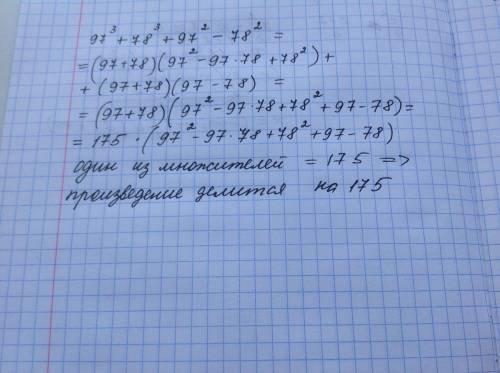 97³ + 78³ + 97² - 78² =
= (97+78)(97² - 97·78 + 78²) +
+ (97+78)(97 - 78) =
= (97+78)(97² - 97·78 + 78² + 97 - 78) =
= 175 · (97² - 97·78 + 78² + 97 - 78)
один из множителей = 175 =>
произведение делится на 175